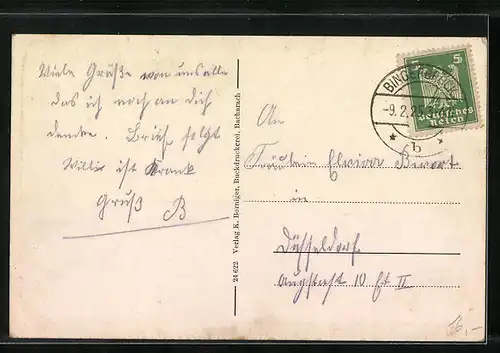 Viele Grüße von uns alle
das ich noch an dich
denke. Brief folgt
Willi ist krank
Gruß B
24 622 Verlag K. Borniger, Buchdruckerei, Bacharach
5 5
Deutsches
Reich
-9.2.2
* b *
An
Fräulein
in
Düsseldorf
10 II
16,-